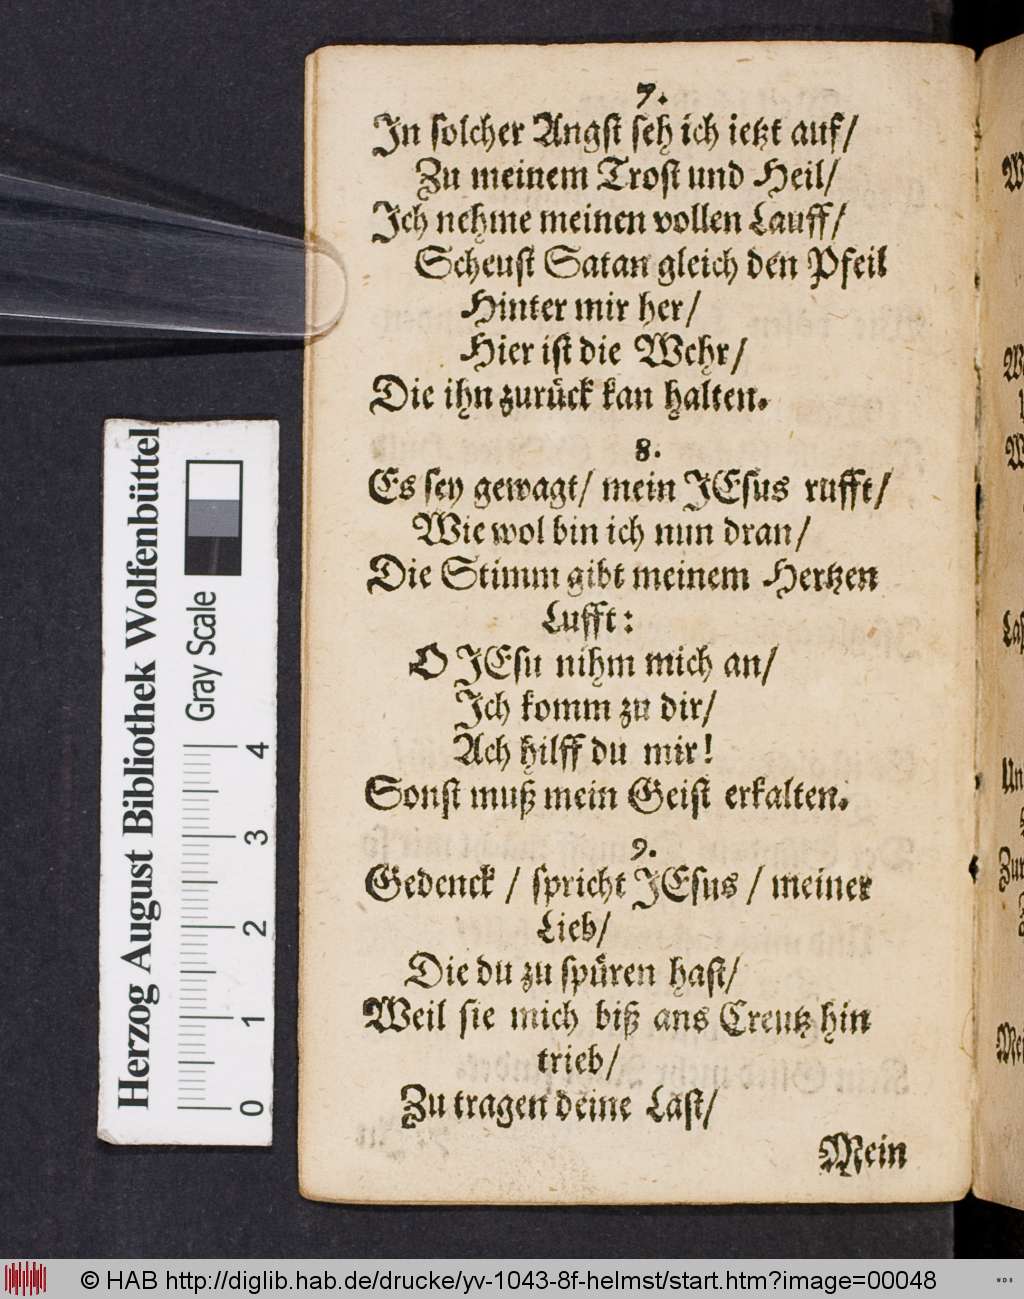 7.
In solcher Angst seh ich ietzt auf/
Zu meinem Trost und Heil/
Ich nehme meinen vollen Lauff/
Scheust Satan gleich den Pfeil
Hinter mir her/
Hier ist die Wehr/
Die ihn zurück kan halten.
8.
Es sey gewagt/ mein JEsus rufft/
Wie wol bin ich nun dran/
Die Stimm gibt meinem Hertzen
Lufft:
O JEsu nihm mich an/
Ich komm zu dir/
Ach hilff du mir!
Sonst muß mein Geist erkalten.
9.
Gedenck / spricht JEsus / meiner
Lieb/
Die du zu spüren hast/
Weil sie mich biß ans Creutz hin
trieb/
Zu tragen deine Last/
Mein
Herzog August Bibliothek Wolfenbüttel
Gray Scale
0 1 2 3 4
© HAB http://diglib.hab.de/drucke/yv-1043-8f-helmst/start.htm?image=00048